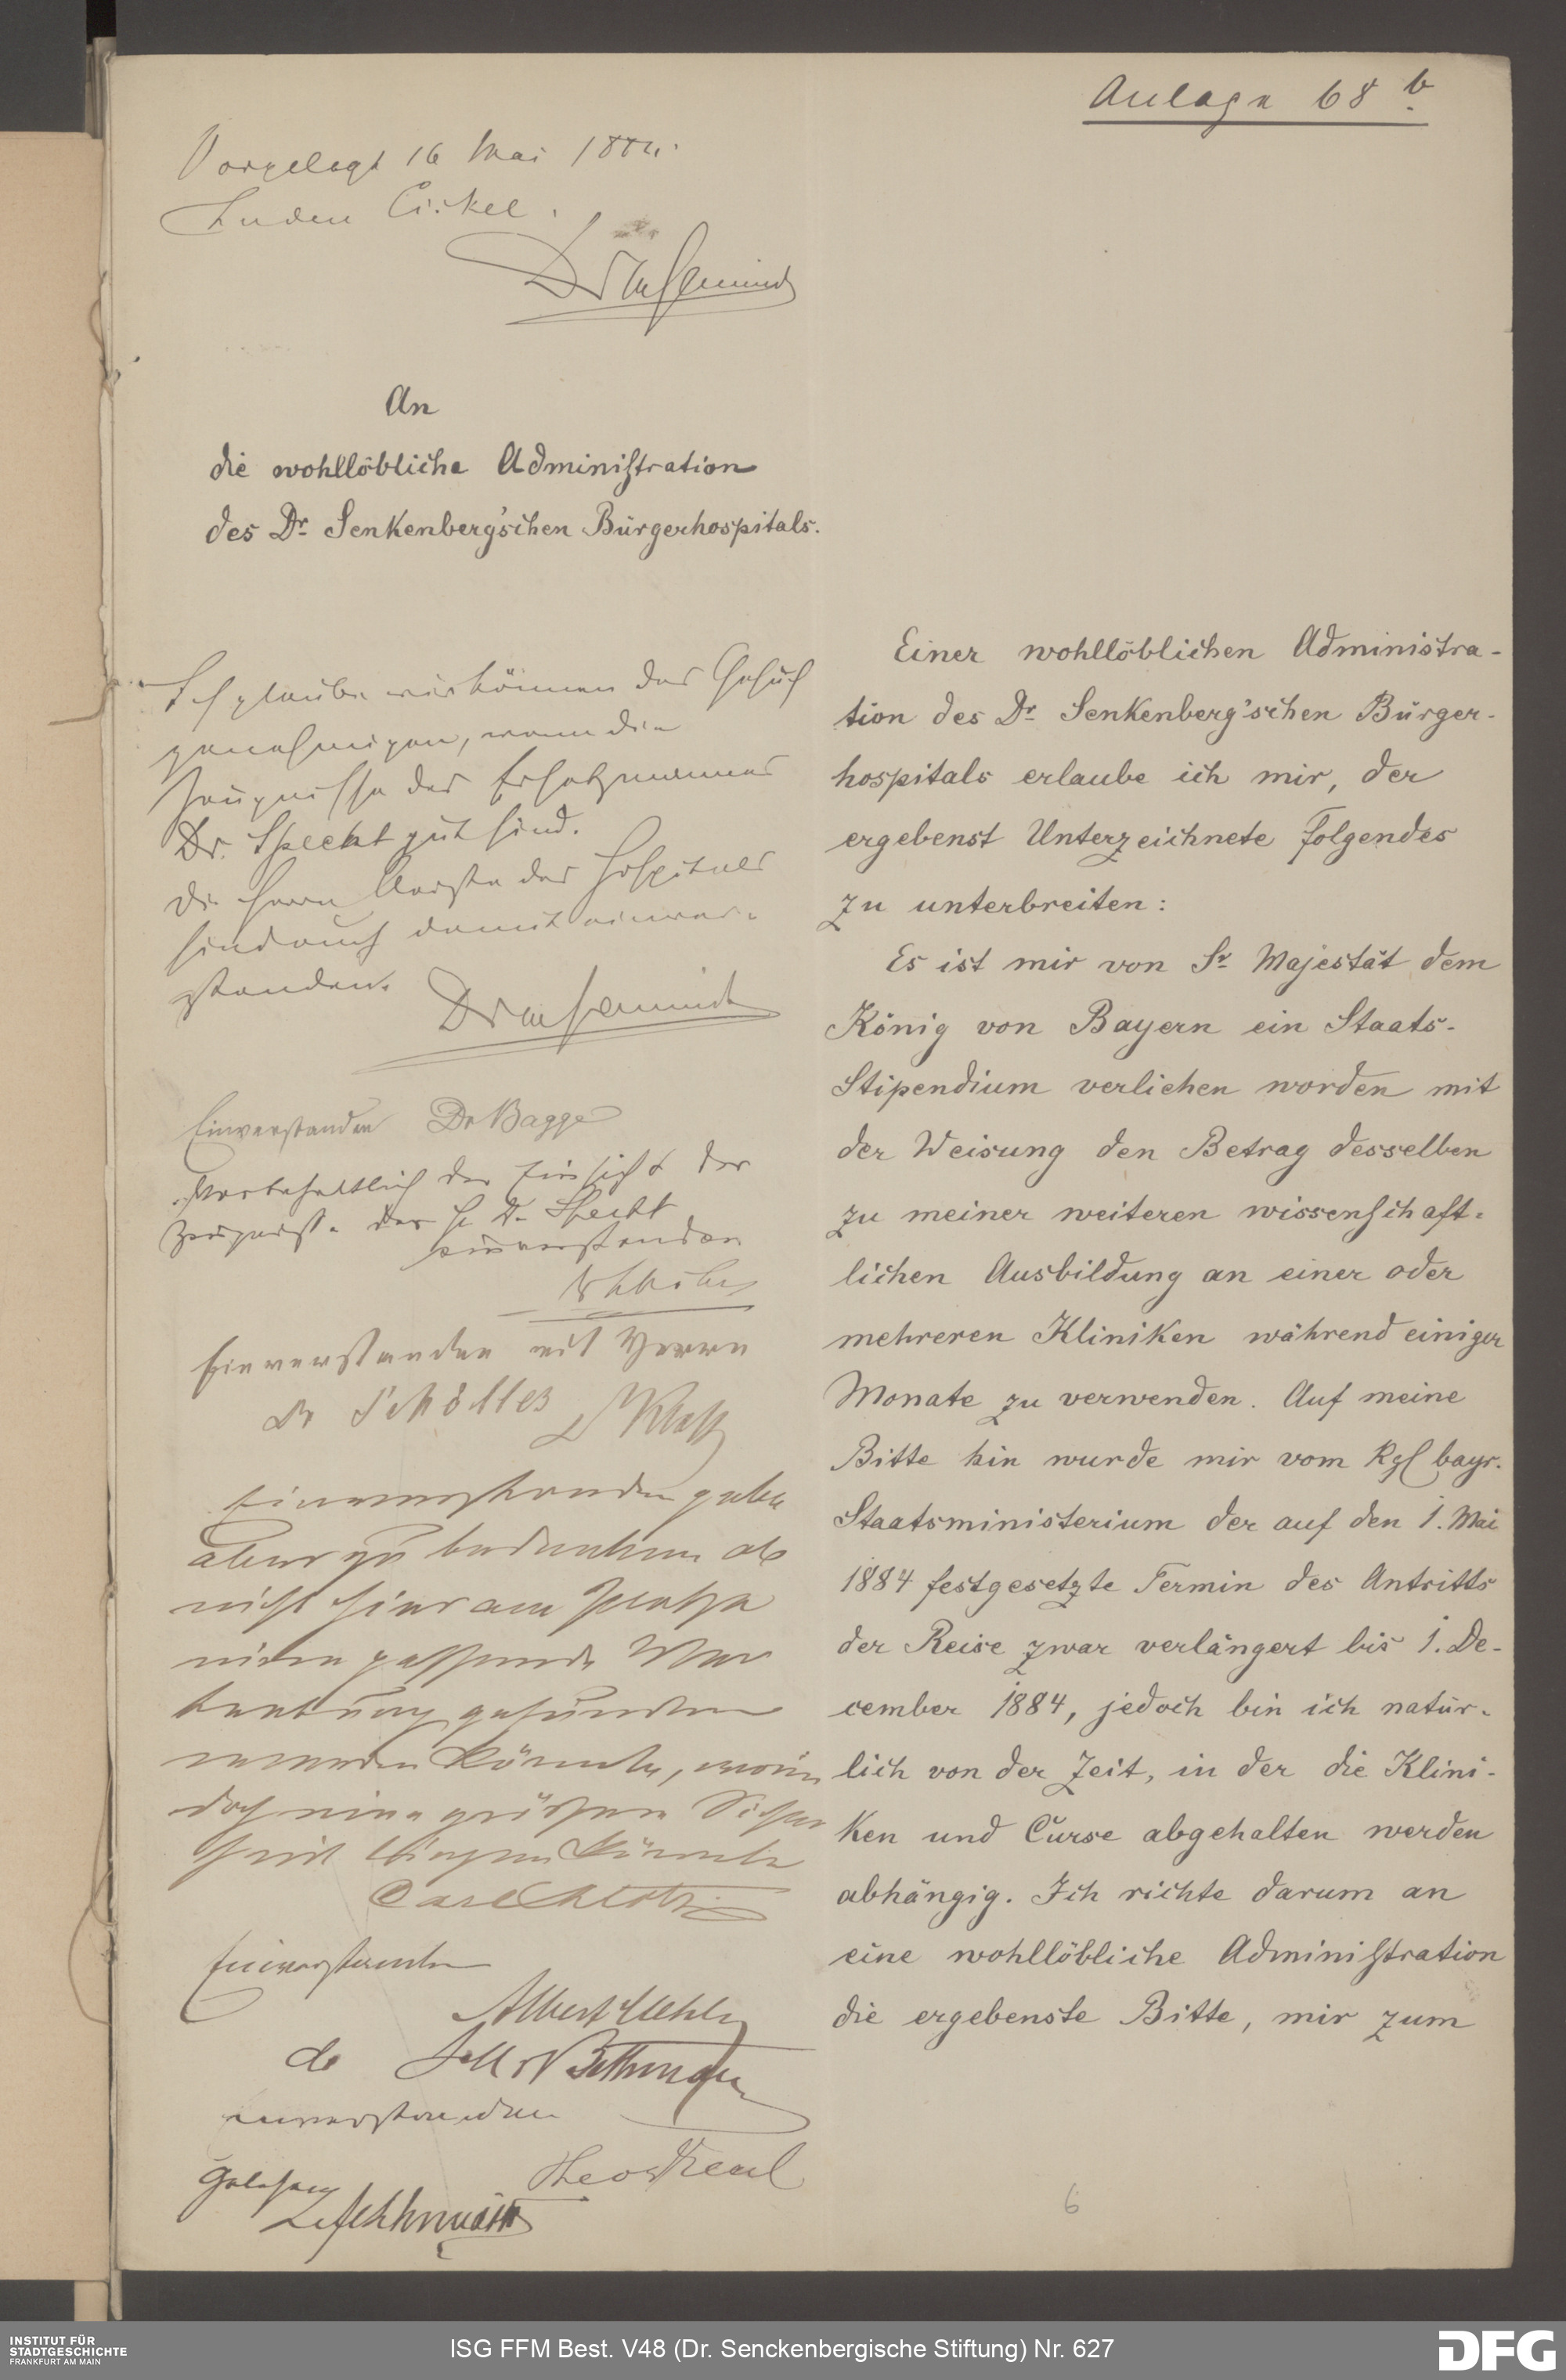 Anlage 68 b
Vorgelegt 16 Mai 1884.
In den Cirkel.
An
die wohllöbliche Administration
des Dr. Senkenberg'schen Bürgerhospitals.
Ich glaube wir können das Gesuch
genehmigen, wenn die
Zeugnisse des Ersatzmannes
Dr. Specht gut sind.
Die Herrn Aerzte des Hospitales
sind auch damit einver-
standen.
Einverstanden Dr Bagge
Vorbehaltlich der Einsicht der
Zeugnisse des H. Dr. Specht
einverstanden
Einverstanden mit Herrn
Dr Schölles
Einverstanden gebe
aber zu bedenken ob
nicht hier am Platze
eine passende Ver
tretung gefunden
werden könnte, worin
doch eine größere Sicher
heit liegen könnte
Einverstanden
Albert
do Bethmann
einverstanden
Theod
Gelesen
Einer wohllöblichen Administra-
tion des Dr. Senkenberg'schen Bürger-
hospitals erlaube ich mir, der
ergebenst Unterzeichnete folgendes
zu unterbreiten:
Es ist mir von Sr. Majestät dem
König von Bayern ein Staats-
Stipendium verliehen worden mit
der Weisung den Betrag desselben
zu meiner weiteren wissenschaft-
lichen Ausbildung an einer oder
mehreren Kliniken während einiger
Monate zu verwenden. Auf meine
Bitte hin wurde mir vom Kgl bayr.
Staatsministerium der auf den 1. Mai
1884 festgesetzte Termin des Antritts
der Reise zwar verlängert bis 1. De-
cember 1884, jedoch bin ich natür-
lich von der Zeit, in der die Klini-
ken und Curse abgehalten werden
abhängig. Ich richte darum an
eine wohllöbliche Administration
die ergebenste Bitte, mir zum
6
INSTITUT FÜR
STADTGESCHICHTE
FRANKFURT AM MAIN
ISG FFM Best. V48 (Dr. Senckenbergische Stiftung) Nr. 627
DFG